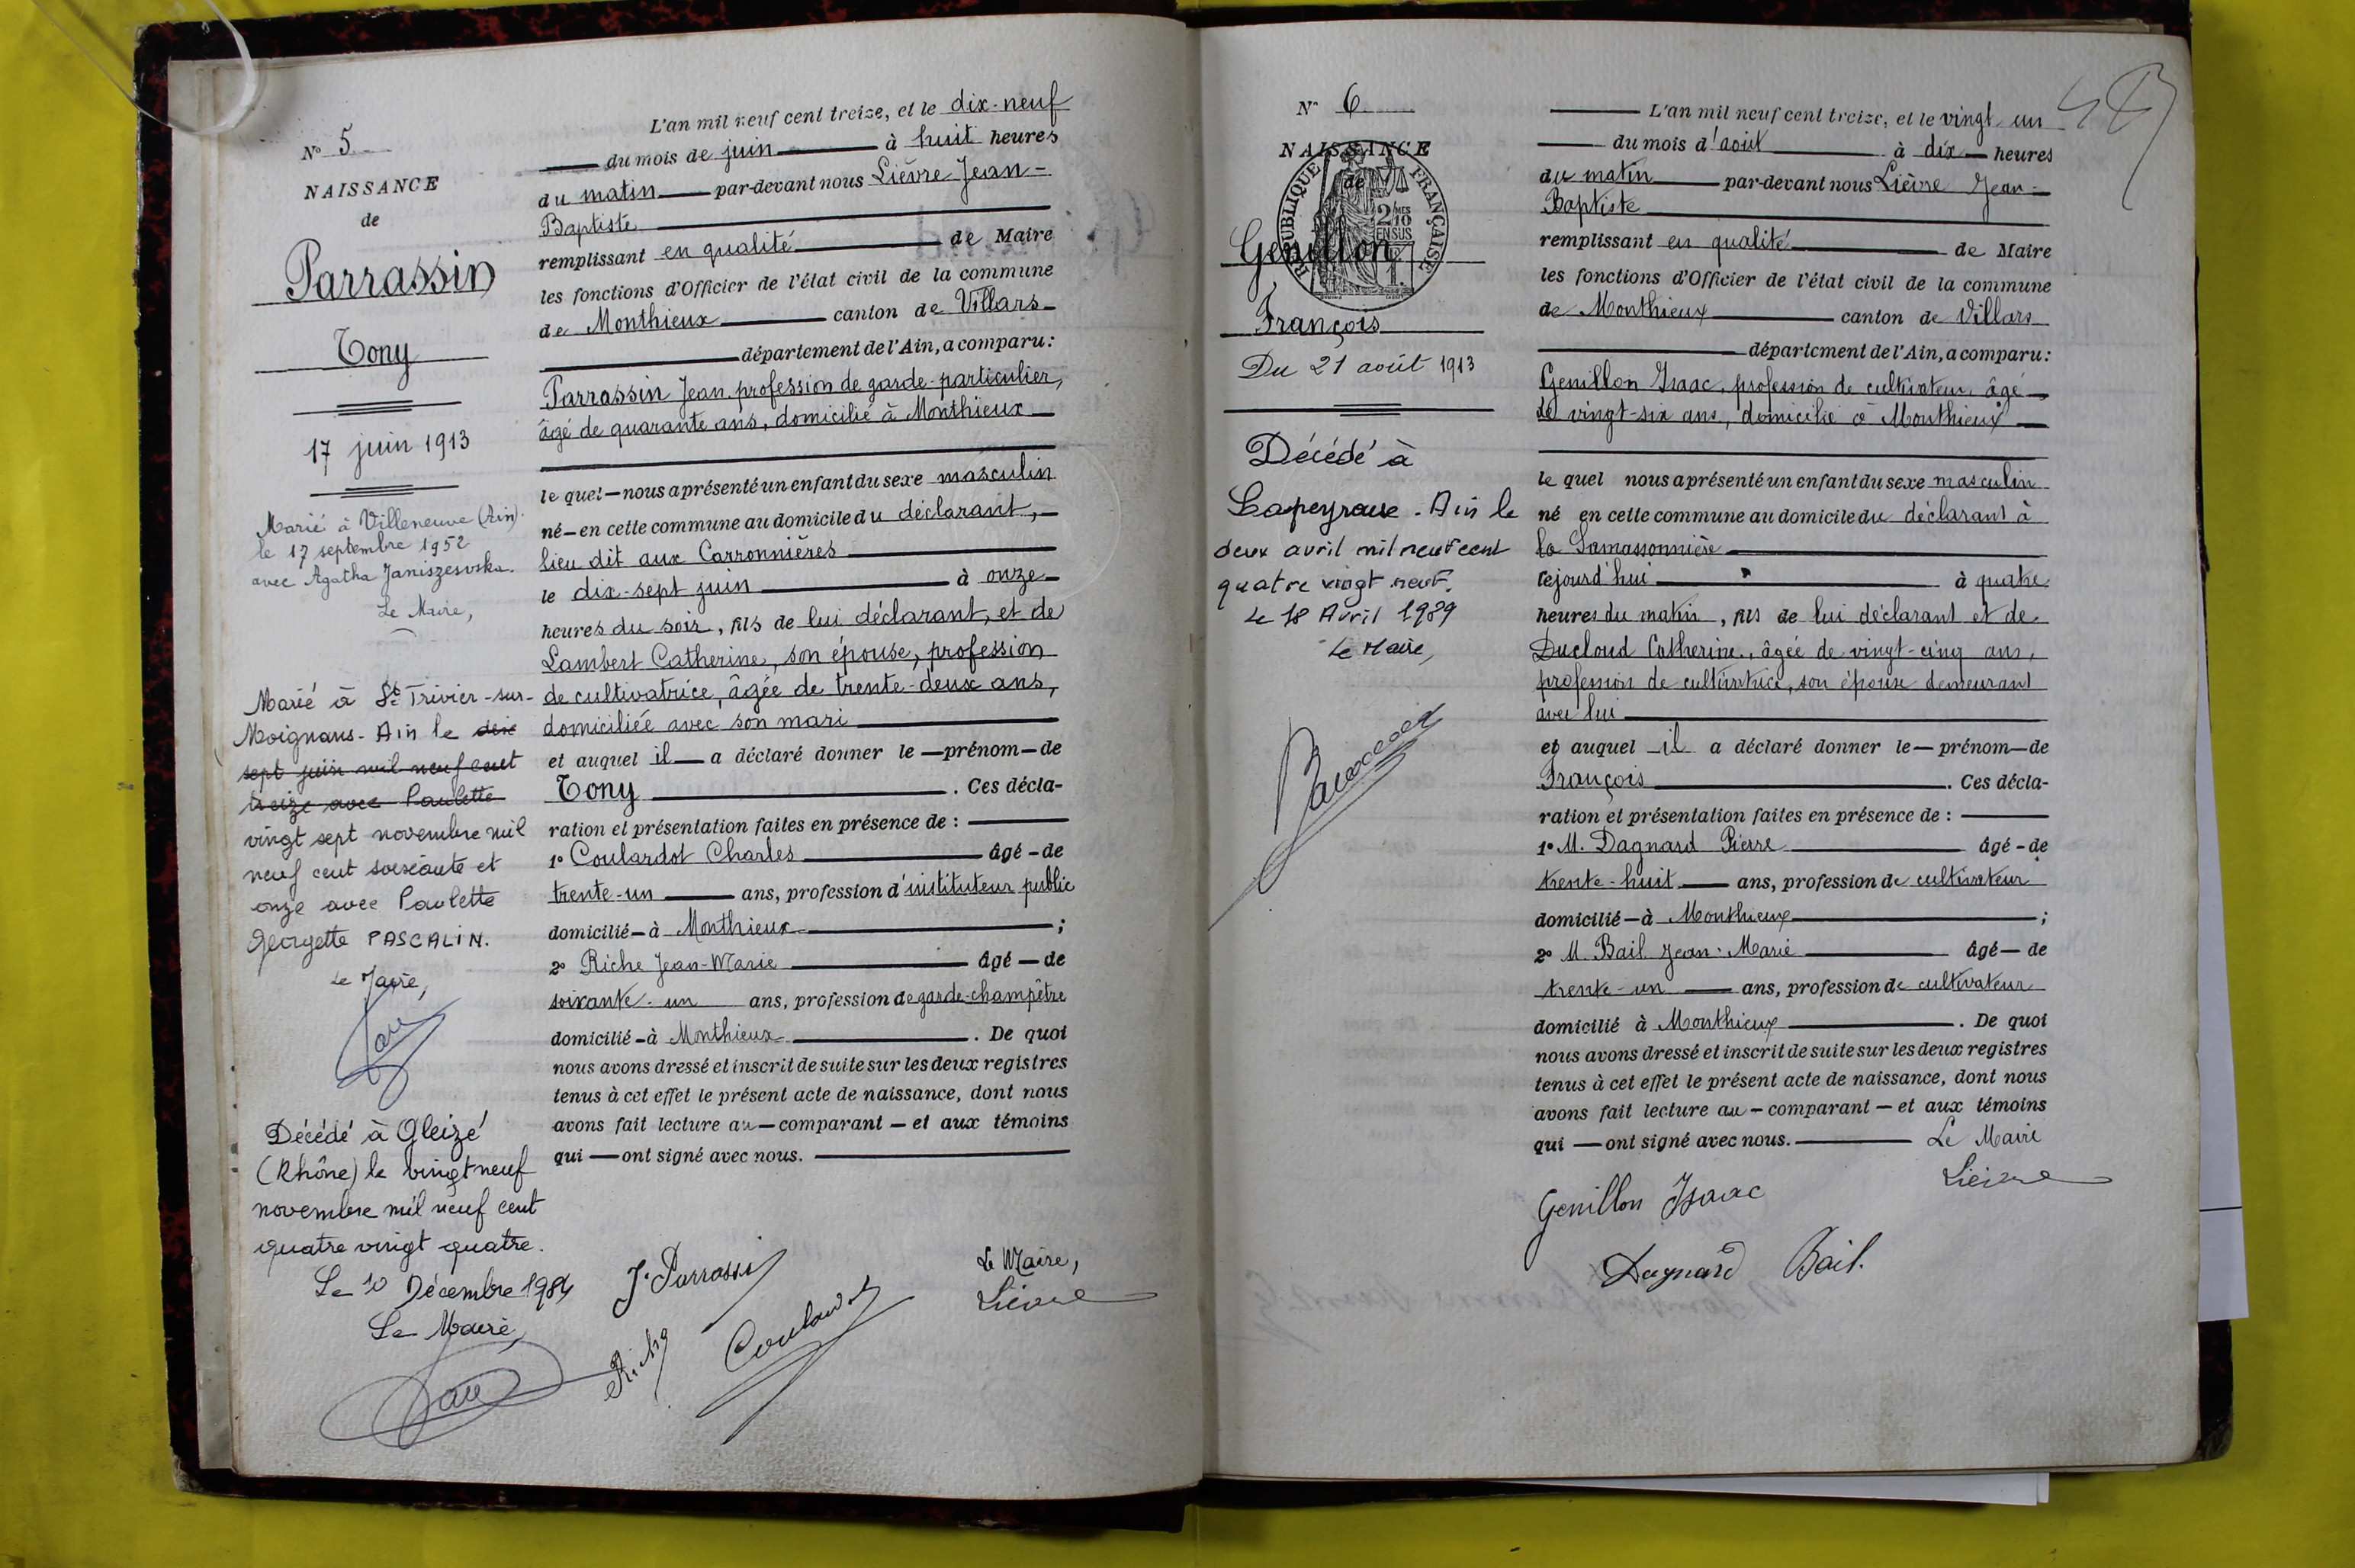 N° 5
NAISSANCE
de
Parrassin
Tony
17 juin 1913
Marié à Villeneuve (Ain).
le 17 septembre 1952
avec Agatha Janiszewska.
Le Maire,
Marié à St Trivier-sur-
Moignans - Ain le dix
sept juin mil neuf cent
treize avec Paulette
vingt sept novembre mil
neuf cent soixante et
onze avec Paulette
Georgette PASCALIN.
Le Maire,
Décédé à Gleizé
(Rhône) le vingt neuf
novembre mil neuf cent
quatre vingt quatre.
Le 10 Décembre 1984
Le Maire,
L'an mil neuf cent treize, et le dix-neuf
du mois de juin à huit heures
du matin par-devant nous Lièvre Jean-
Baptiste
remplissant en qualité de Maire
les fonctions d'Officier de l'état civil de la commune
de Monthieux canton de Villars
département de l'Ain, a comparu:
Parrassin Jean, profession de garde-particulier,
âgé de quarante ans, domicilié à Monthieux
le quel — nous a présenté un enfant du sexe masculin
né — en cette commune au domicile du déclarant,
lieu dit aux Carronnières
le dix-sept juin à onze
heures du soir, fils de lui déclarant, et de
Lambert Catherine, son épouse, profession
de cultivatrice, âgée de trente-deux ans,
domiciliée avec son mari
et auquel il — a déclaré donner le — prénom — de
Tony . Ces décla-
ration et présentation faites en présence de :
1° Coulardot Charles âgé - de
trente-un ans, profession d'instituteur public
domicilié — à Monthieux ;
2° Riche Jean-Marie âgé — de
soixante-un ans, profession de garde-champêtre
domicilié - à Monthieux . De quoi
nous avons dressé et inscrit de suite sur les deux registres
tenus à cet effet le présent acte de naissance, dont nous
avons fait lecture au — comparant — et aux témoins
qui — ont signé avec nous.
Le Maire,
J. Parrassin
Lièvre
Riche
Coulardot
N° 6
NAISSANCE
de
RÉPUBLIQUE FRANÇAISE
2/10 MES
EN SUS
Genillon
François
Du 21 août 1913
Décédé à
Lapeyrouse - Ain le
deux avril mil neuf cent
quatre vingt neuf.
Le 18 Avril 1989
Le Maire,
L'an mil neuf cent treize, et le vingt un
du mois d'août à dix — heures
du matin par-devant nous Lièvre Jean-
Baptiste
remplissant en qualité de Maire
les fonctions d'Officier de l'état civil de la commune
de Monthieux canton de Villars
département de l'Ain, a comparu:
Genillon Isaac, profession de cultivateur, âgé
de vingt-six ans, domicilié à Monthieux
le quel nous a présenté un enfant du sexe masculin
né en cette commune au domicile du déclarant à
la Samassonnière
cejourd'hui à quatre
heures du matin, fils de lui déclarant et de
Ducloud Catherine, âgée de vingt-cinq ans,
profession de cultivatrice, son épouse demeurant
avec lui
et auquel il a déclaré donner le — prénom — de
François . Ces décla-
ration et présentation faites en présence de :
1° M. Dagnard Pierre âgé - de
trente-huit ans, profession de cultivateur
domicilié — à Monthieux ;
2° M. Bail Jean-Marie âgé — de
trente-un ans, profession de cultivateur
domicilié à Monthieux . De quoi
nous avons dressé et inscrit de suite sur les deux registres
tenus à cet effet le présent acte de naissance, dont nous
avons fait lecture au — comparant — et aux témoins
qui — ont signé avec nous. Le Maire
Lièvre
Genillon Isaac
Dagnard Bail.